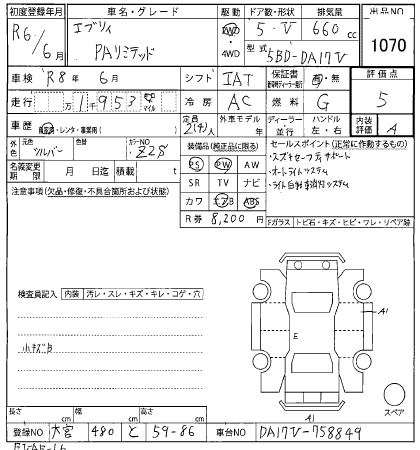 初度登録年月 車名・グレード 駆動 ドア数・形状 排気量 出品NO
R6/6月 エブリィ PAリミテッド 2WD ・ 4WD 5・V 660cc 1070
型式 5BD-DA17V
車検 R8年 6月 シフト IAT 保証書 有・無 評価点
走行 万1千953 km マイル 冷房 AC 燃料 G 5
車歴 自家用・レンタ・事業用( ) 定員 2(4)人 外車モデル 年 ディーラー・並行 ハンドル 左・右 内装評価 A
外色 元色 シルバー カラーNO Z2S
装備品(純正品に限る) セールスポイント(正常に作動するもの)
名義変更期限 月 日迄 積載 t
PS PW AW
SR TV ナビ
カワ エアB ABS
R券 8,200円
・スズキセーフティサポート
・オートライトシステム
・ライト自動消灯システム
注意事項(欠品・修復・不具合箇所および状態)
Fガラス トビ石・キズ・ヒビ・ワレ・リペア跡
検査員記入 内装 汚レ・スレ・キズ・キレ・コゲ・穴
小キズB
A1
E
A1
スペア
長さ cm 幅 cm 高さ cm
登録NO 大宮 480 と 59-86 車台NO DA17V-758849